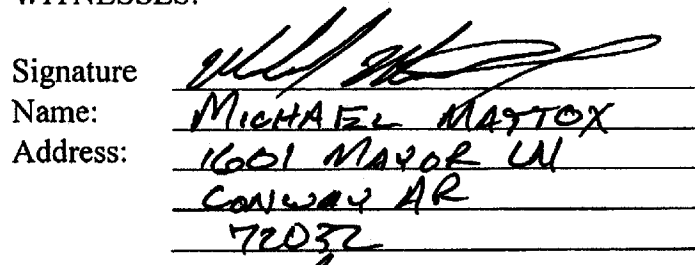 WITNESSES:
Signature
Name: MICHAEL MATTOX
Address: 1601 MAYOR LN
CONWAY AR
72032